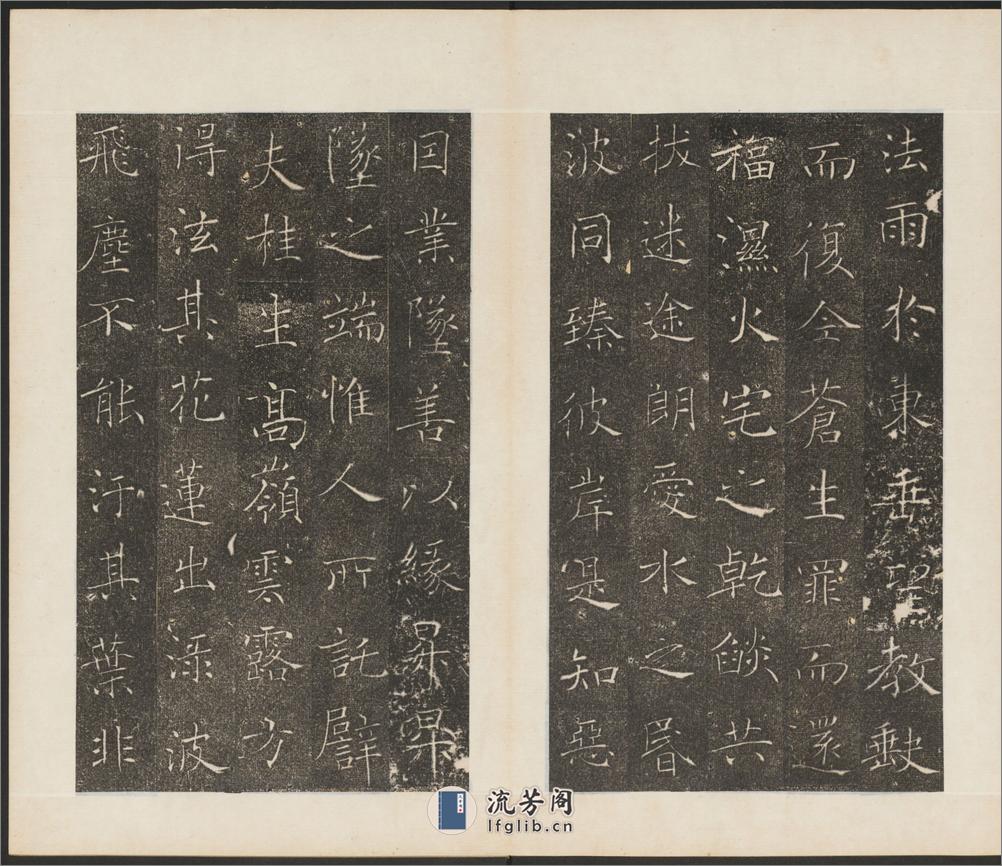 法雨於東垂聖教缺
而復全蒼生罪而還
福濕火宅之乾燄共
拔迷途朗愛水之昏
波同臻彼岸是知惡
因業墜善以緣昇昇
墜之端惟人所託譬
夫桂生高嶺雲露方
得泫其花蓮出淥波
飛塵不能汙其葉非
流芳阁
lfglib.cn